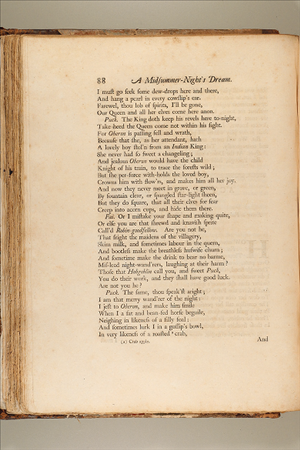 88 A Midsummer-Night's Dream.
I must go seek some dew-drops here and there,
And hang a pearl in every cowslip's ear.
Farewel, thou lob of spirits, I'll be gone,
Our Queen and all her elves come here anon.
Puck. The King doth keep his revels here to-night,
Take heed the Queen come not within his sight.
For Oberon is passing fell and wrath,
Because that she, as her attendant, hath
A lovely boy stol'n from an Indian King:
She never had so sweet a changeling;
And jealous Oberon would have the child
Knight of his train, to trace the forests wild;
But she per-force with-holds the loved boy,
Crowns him with flow'rs, and makes him all her joy.
And now they never meet in grove, or green,
By fountain clear, or spangled star-light sheen,
But they do square, that all their elves for fear
Creep into acorn cups, and hide them there.
Fai. Or I mistake your shape and making quite,
Or else you are that shrewd and knavish sprite
Call'd Robin-goodfellow. Are you not he,
That fright the maidens of the villagery,
Skim milk, and sometimes labour in the quern,
And bootless make the breathless huswife churn;
And sometime make the drink to bear no barme,
Mis-lead night-wand'rers, laughing at their harm?
Those that Hobgoblin call you, and sweet Puck,
You do their work, and they shall have good luck.
Are not you he?
Puck. The same, thou speak'st aright;
I am that merry wand'rer of the night:
I jest to Oberon, and make him smile
When I a fat and bean-fed horse beguile,
Neighing in likeness of a silly foal;
And sometimes lurk I in a gossip's bowl,
In very likeness of a roasted crab,
And